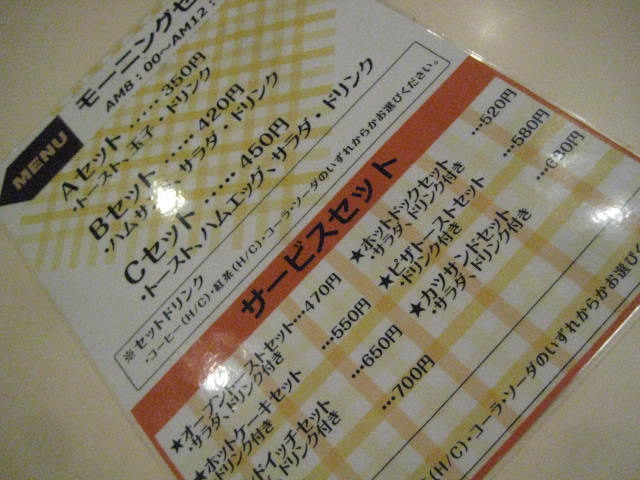 MENU
モーニングセ
AM8:00～AM12:
Aセット ……350円
・トースト、玉子・ドリンク
Bセット ……420円
・ハムサ サラダ・ドリンク
Cセット ……450円
・トースト、ハムエッグ、サラダ・ドリンク
※セットドリンク
・コーヒー(H/C)・紅茶(H/C)・コーラ・ソーダのいずれからかお選びください。
サービスセット
★オープントーストセット…470円
・サラダ、ドリンク付き
★ホットケーキセット …550円
ドリンク付き
ドイッチセット …650円
、ドリンク付き
…700円
★ホットドックセット …520円
・サラダ、ドリンク付き
★ピザトーストセット …580円
・ドリンク付き
★カツサンドセット …630円
・サラダ、ドリンク付き
(H/C)・コーラ・ソーダのいずれからかお選び